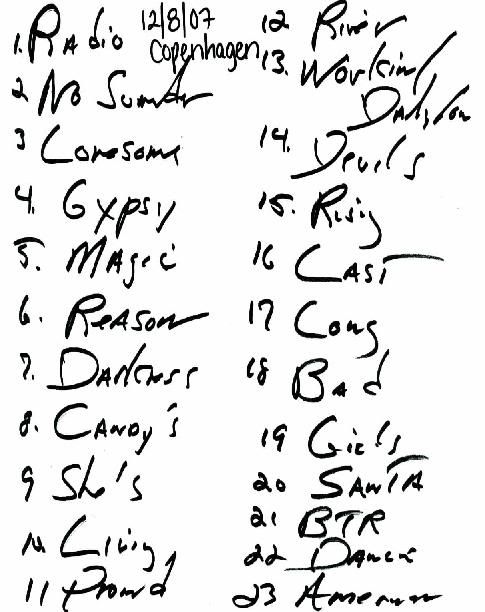 12/8/07
Copenhagen
1. Radio
2 No Surrender
3 Lonesome
4. Gypsy
5. Magic
6. Reason
7. Darkness
8. Candy's
9 She's
10 Living
11 Prom'd
12 River
13. Workin'
Dadylon
14. Devils
15. Risig
16 Last
17 Long
18 Bad
19 Girls
20 Santa
21 BTR
22 Dance
23 American